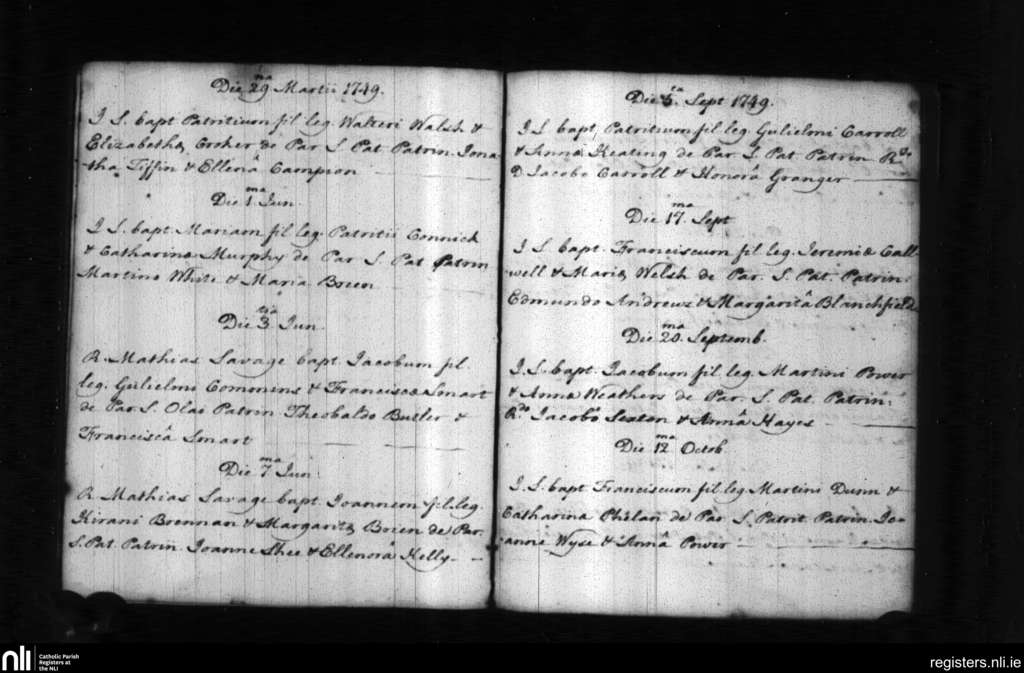 Die 29ma Martii 1749.
I S. bapt Patritium fil leg. Walteri Walsh &
Elizabethæ Croker de Par S Pat Patrin. Jona
tha Tiffin & Ellenâ Campion
Die 1ma Jun.
I S. bapt. Mariam fil leg. Patritii Connick
& Catharinæ Murphy de Par S. Pat Patrin
Martino White & Maria Breen
Die 3tia Jun.
R. Mathias Savage bapt Jacobum fil.
leg. Gulielmi Commins & Franciscæ Smart
de Par. S. Olai Patrin Theobaldo Butler &
Franciscâ Smart
Die 7ma Jun.
R. Mathias Savage bapt Joannem fil. leg.
Kirani Brennan & Margaritæ Brien de Par.
S. Pat. Patrin Joanne Shee & Ellenorâ Kelly
Die 5ta Sept 1749.
I S bapt Patritium fil leg Gulielmi Carroll
& Annæ Keating de Par S. Pat. Patrin Rdo
D Jacobo Carroll & Honorâ Granger
Die 17ma Sept
I S. bapt. Franciscum fil leg. Jeremiæ Call
well & Mariæ Welsh de Par. S. Pat. Patrin.
Edmundo Andrews & Margaritâ Blanchfield
Die 20ma Septemb.
I. S. bapt. Jacobum fil leg. Martini Power
& Annæ Weathers de Par. S. Pat. Patrin.
Rdo Jacobo Sexton & Annâ Hayes
Die 12ma Octob
I. S. bapt Franciscum fil leg Martini Dunn &
Catharina Phelan de Par S. Patrit Patrin Jo=
anne Wyse & Annâ Power
nli Catholic Parish
Registers at
the NLI
registers.nli.ie